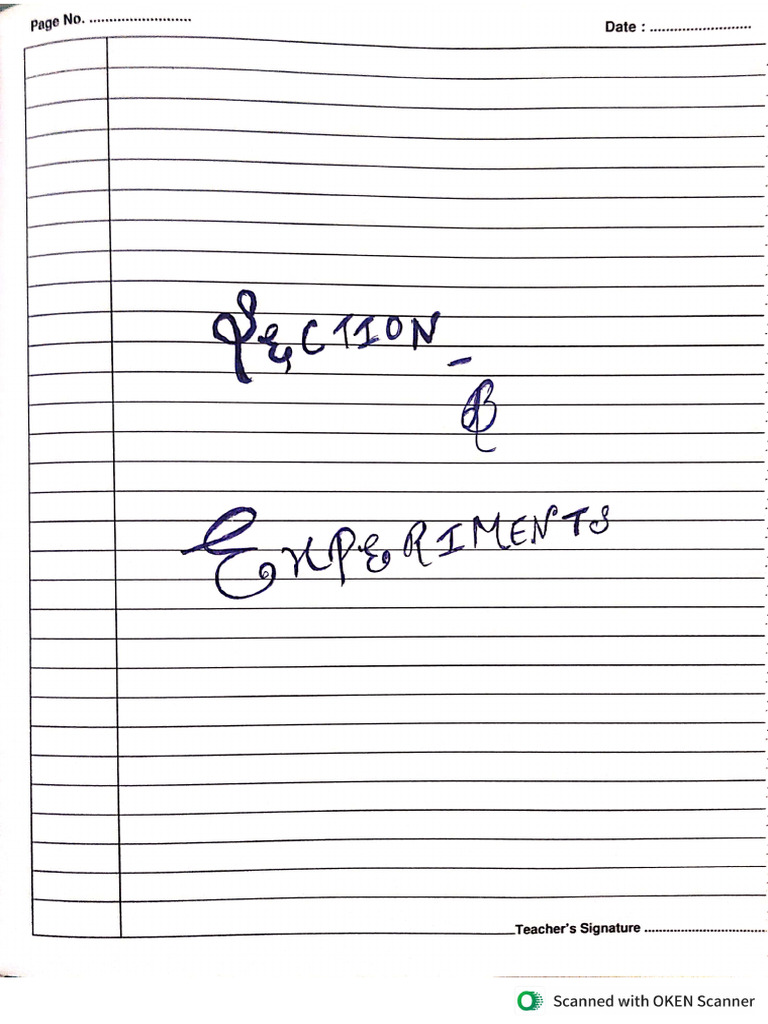 Page No. ..........................
Date : ..........................
SECTION
- B
EXPERIMENTS
Teacher's Signature ................................
Scanned with OKEN Scanner